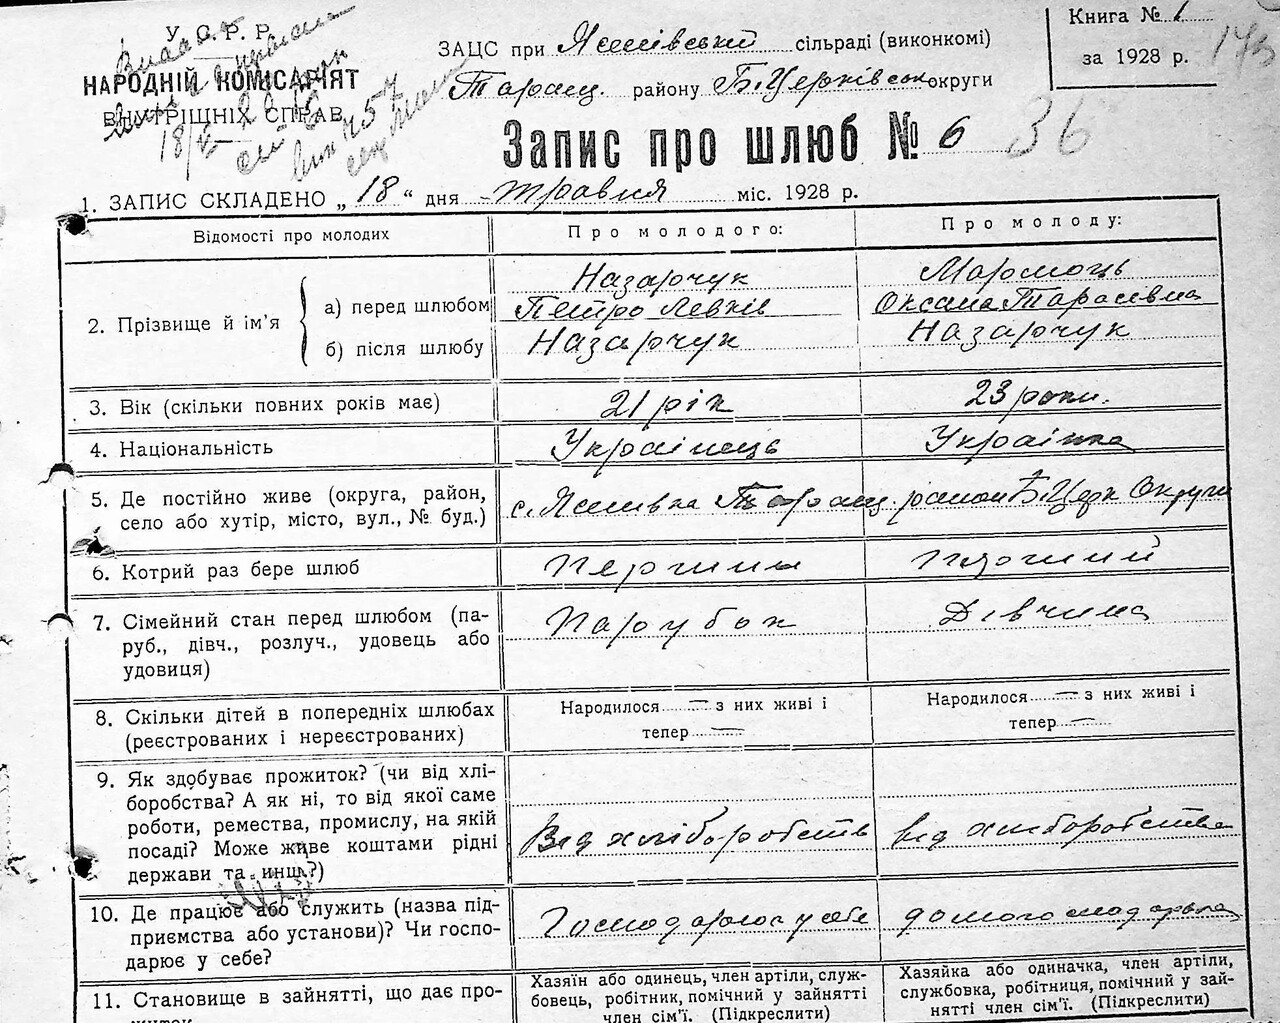 У. С. Р. Р.
НАРОДНІЙ КОМІСАРІЯТ
ВНУТРІШНІХ СПРАВ
18/V
ЗАЦС при Яшівський сільраді (виконкомі)
Таращ. району Б.Церківськ округи
Книга № 1
за 1928 р.
Запис про шлюб № 6
36
1. ЗАПИС СКЛАДЕНО „18“ дня травня міс. 1928 р.
Відомості про молодих
Про молодого:
Про молоду:
2. Прізвище й ім’я
а) перед шлюбом
Назарчук
Петро Левків
Оксана Тарасівна
б) після шлюбу
Назарчук
Назарчук
3. Вік (скільки повних років має)
21 рік
23 роки.
4. Національність
Українець
Українка
5. Де постійно живе (округа, район,
село або хутір, місто, вул., № буд.)
с. Яшівка Таращ. район Б.Церк Округи
6. Котрий раз бере шлюб
Перший
Перший
7. Сімейний стан перед шлюбом (па-
руб., дівч., розлуч., удовець або
удовиця)
Парубок
Дівчина
8. Скільки дітей в попередніх шлюбах
(реєстрованих і нереєстрованих)
Народилося — з них живі і
тепер —
Народилося — з них живі і
тепер —
9. Як здобуває прожиток? (чи від хлі-
боробства? А як ні, то від якої саме
роботи, ремества, промислу, на якій
посаді? Може живе коштами рідні
держави та инш.?)
Від хліборобств
від хліборобства
10. Де працює або служить (назва під-
приємства або установи)? Чи госпо-
дарює у себе?
Господарює у себе
домогосподарка
11. Становище в зайнятті, що дає про-
житок
Хазяїн або одинець, член артілі, служ-
бовець, робітник, помічний у зайнятті
член сім’ї. (Підкреслити)
Хазяйка або одиначка, член артілі,
службовка, робітниця, помічна у зай-
нятті член сім’ї. (Підкреслити)